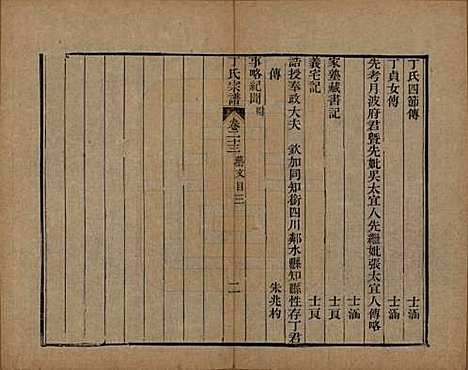 丁氏四節傳 士涵
丁貞女傳
先考月波府君暨先妣吳太宜人先繼妣張太宜人傳略 士涵
家塾藏書記 士頁
義宅記 士頁
誥授奉政大夫 欽加同知銜四川鄰水縣知縣性存丁君
傳 朱兆杓
事略紀聞附
丁氏宗譜 卷二十三 藝文目三 二